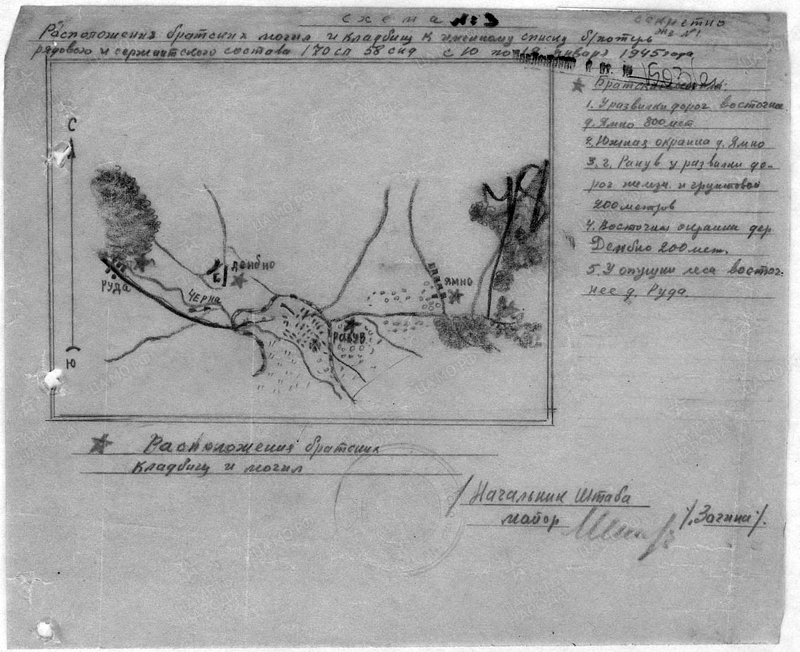 Схема №3
Секретно
Экз. №1
Расположения братских могил и кладбищ к именному списку б/потерь
рядового и сержантского состава 170 сп 58 сид с 10 по 18 января 1945 года
1. У развилки дорог восточнее
д. Ямно 800 мет
2. Южная окраина д. Ямно
3. г. Ракув у развилки до-
рог железн. и грунтовой
200 метров
4. Восточн. окраина дер
Дембно 200 мет.
5. У опушки леса восточ-
нее д. Руда.
С
Ю
Руда
Черна
Дембно
Ракув
Ямно
Расположения братских
кладбищ и могил
/Начальник Штаба
майор /.Загина/.